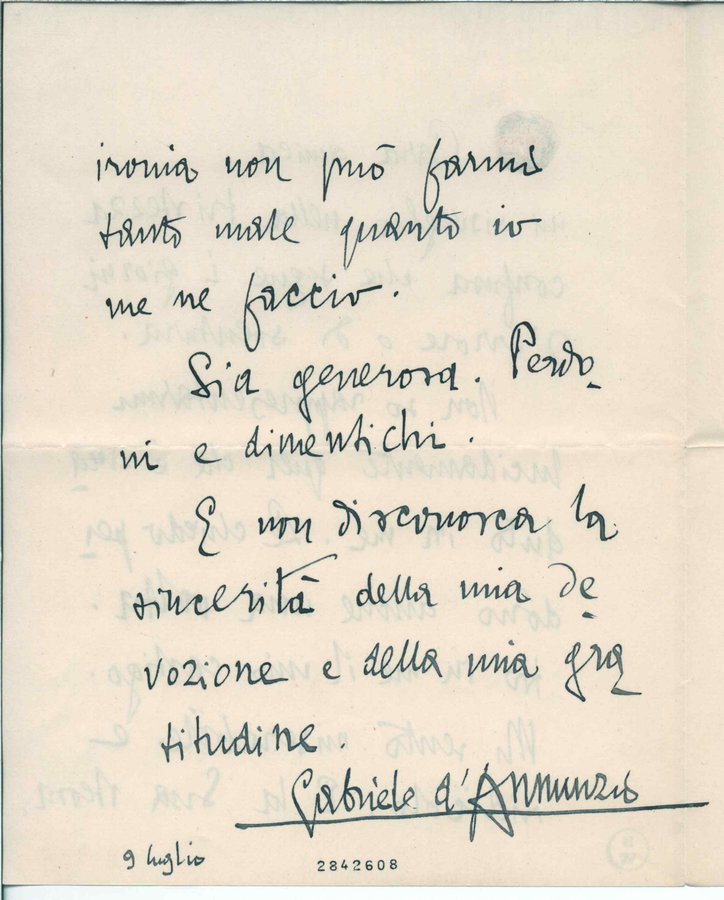 ironia non può farmi
tanto male quanto io
me ne faccio.
Sia generosa. Perdo-
ni e dimentichi.
E non disconosca la
sincerità della mia de-
vozione e della mia gra-
titudine.
Gabriele d'Annunzio
9 luglio
2842608